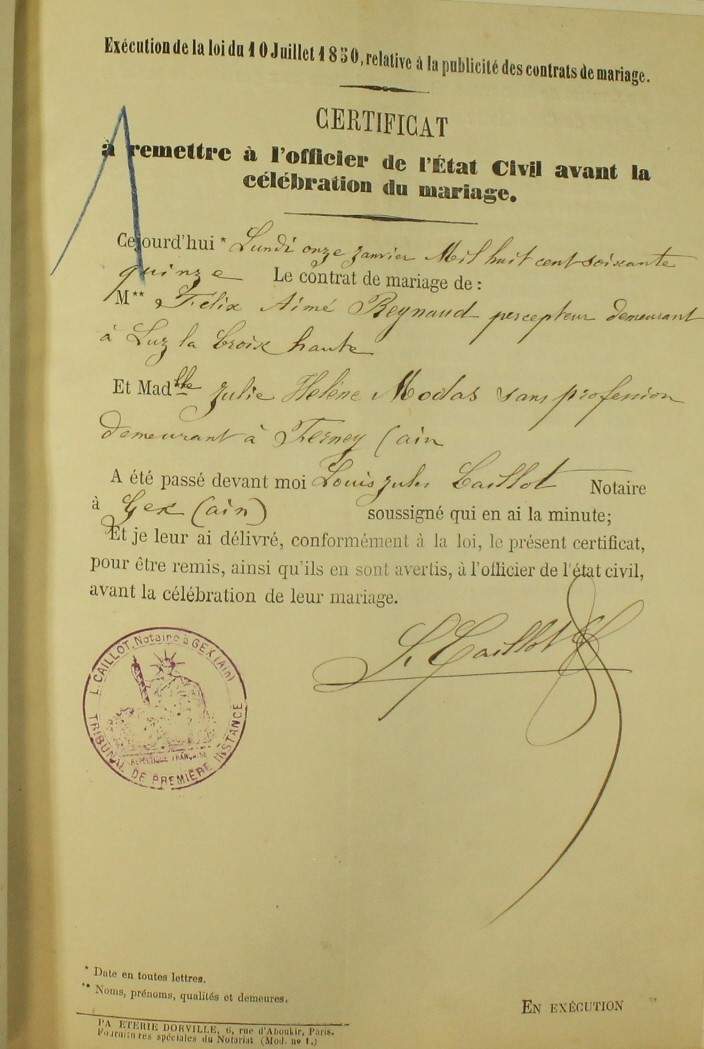 Exécution de la loi du 10 Juillet 1850, relative à la publicité des contrats de mariage.
CERTIFICAT
à remettre à l'officier de l'État Civil avant la
célébration du mariage.
Cejourd'hui * Lundi onze janvier Mil huit cent soixante
quinze Le contrat de mariage de :
M** Félix Aimé Reynaud percepteur demeurant
à Luz la Croix haute
Et Mad lle Julie Helène Modas sans profession
demeurant à Ferney (ain
A été passé devant moi Louis Jules Caillot Notaire
à Gex (ain) soussigné qui en ai la minute;
Et je leur ai délivré, conformément à la loi, le présent certificat,
pour être remis, ainsi qu'ils en sont avertis, à l'officier de l'état civil,
avant la célébration de leur mariage.
L. Caillot
L. CAILLOT, Notaire à GEX (Ain)
TRIBUNAL DE PREMIÈRE INSTANCE
RÉPUBLIQUE FRANÇAISE
* Date en toutes lettres.
** Noms, prénoms, qualités et demeures.
EN EXÉCUTION
PA ETERIE DORVILLE, 6, rue d'Aboukir, Paris.
Fournitures spéciales du Notariat (Mod. nº 1.)